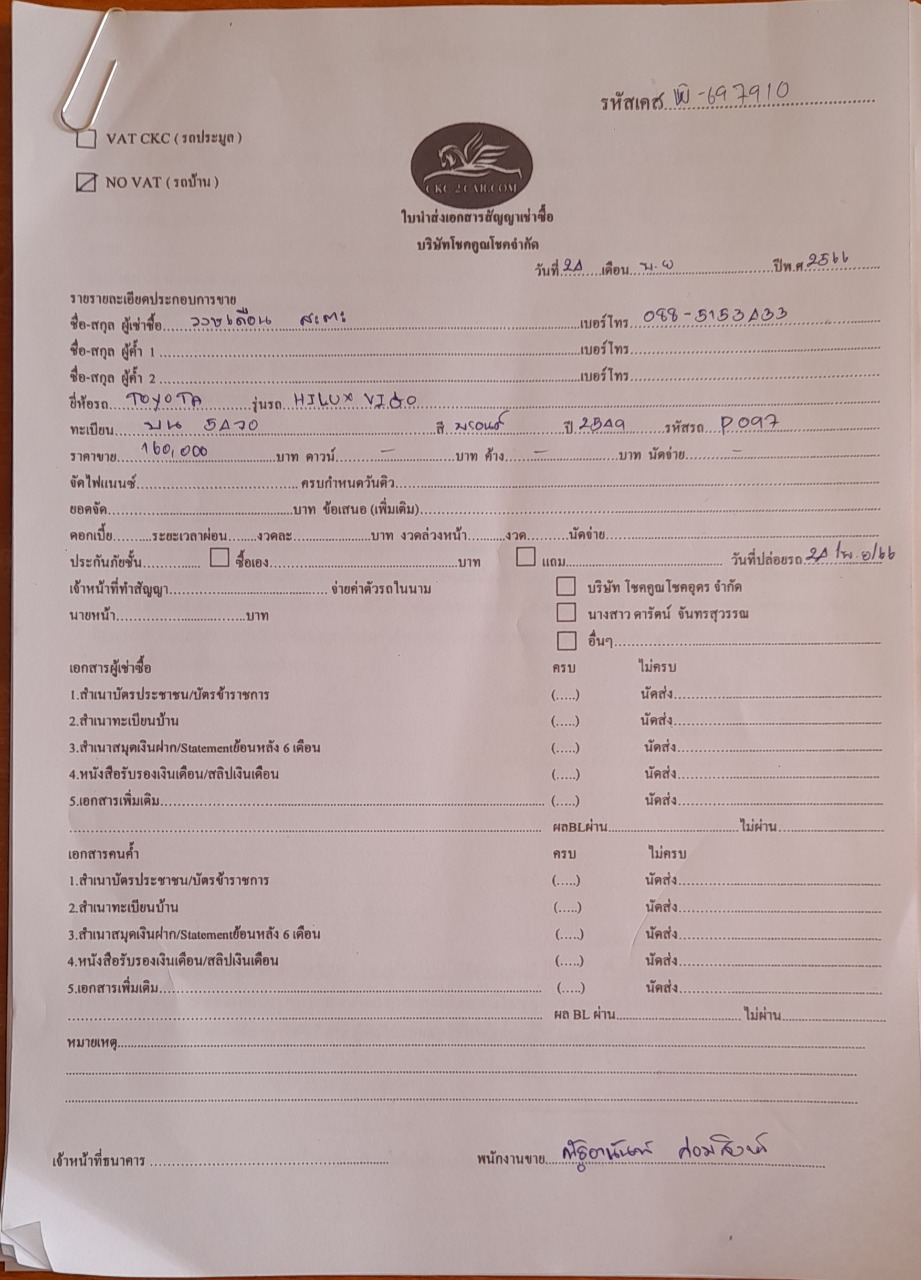 รหัสเคส พิ-697910
VAT CKC ( รถประมูล )
NO VAT ( รถบ้าน )
CKC 2 CAR.COM
ใบนำส่งเอกสารสัญญาเช่าซื้อ
บริษัทโชคคูณโชคจำกัด
วันที่ 24 เดือน พ.ย ปีพ.ศ 2566
รายรายละเอียดประกอบการขาย
ชื่อ-สกุล ผู้เช่าซื้อ เบอร์โทร 088-5153433
ชื่อ-สกุล ผู้ค้ำ 1 เบอร์โทร
ชื่อ-สกุล ผู้ค้ำ 2 เบอร์โทร
ยี่ห้อรถ TOYOTA รุ่นรถ HILUX VIGO
ทะเบียน บน 5470 สี บรอนด์ ปี 2549 รหัสรถ P097
ราคาขาย 160,000 บาท ดาวน์ - บาท ค้าง - บาท นัดจ่าย -
จัดไฟแนนซ์ ครบกำหนดวันคิว
ยอดจัด บาท ข้อเสนอ (เพิ่มเติม)
ดอกเบี้ย ระยะเวลาผ่อน งวดละ บาท งวดล่วงหน้า งวด นัดจ่าย
ประกันภัยชั้น ซื้อเอง บาท แถม วันที่ปล่อยรถ 24/พ.ย/66
เจ้าหน้าที่ทำสัญญา จ่ายค่าตัวรถในนาม บริษัท โชคคูณโชคอุดร จำกัด
นายหน้า บาท นางสาว ดารัตน์ จันทรสุวรรณ
อื่นๆ
เอกสารผู้เช่าซื้อ ครบ ไม่ครบ
1.สำเนาบัตรประชาชน/บัตรข้าราชการ (.....) นัดส่ง
2.สำเนาทะเบียนบ้าน (.....) นัดส่ง
3.สำเนาสมุดเงินฝาก/Statementย้อนหลัง 6 เดือน (.....) นัดส่ง
4.หนังสือรับรองเงินเดือน/สลิปเงินเดือน (.....) นัดส่ง
5.เอกสารเพิ่มเติม (.....) นัดส่ง
ผลBLผ่าน ไม่ผ่าน
เอกสารคนค้ำ ครบ ไม่ครบ
1.สำเนาบัตรประชาชน/บัตรข้าราชการ (.....) นัดส่ง
2.สำเนาทะเบียนบ้าน (.....) นัดส่ง
3.สำเนาสมุดเงินฝาก/Statementย้อนหลัง 6 เดือน (.....) นัดส่ง
4.หนังสือรับรองเงินเดือน/สลิปเงินเดือน (.....) นัดส่ง
5.เอกสารเพิ่มเติม (.....) นัดส่ง
ผล BL ผ่าน ไม่ผ่าน
หมายเหตุ
เจ้าหน้าที่ธนาคาร พนักงานขาย